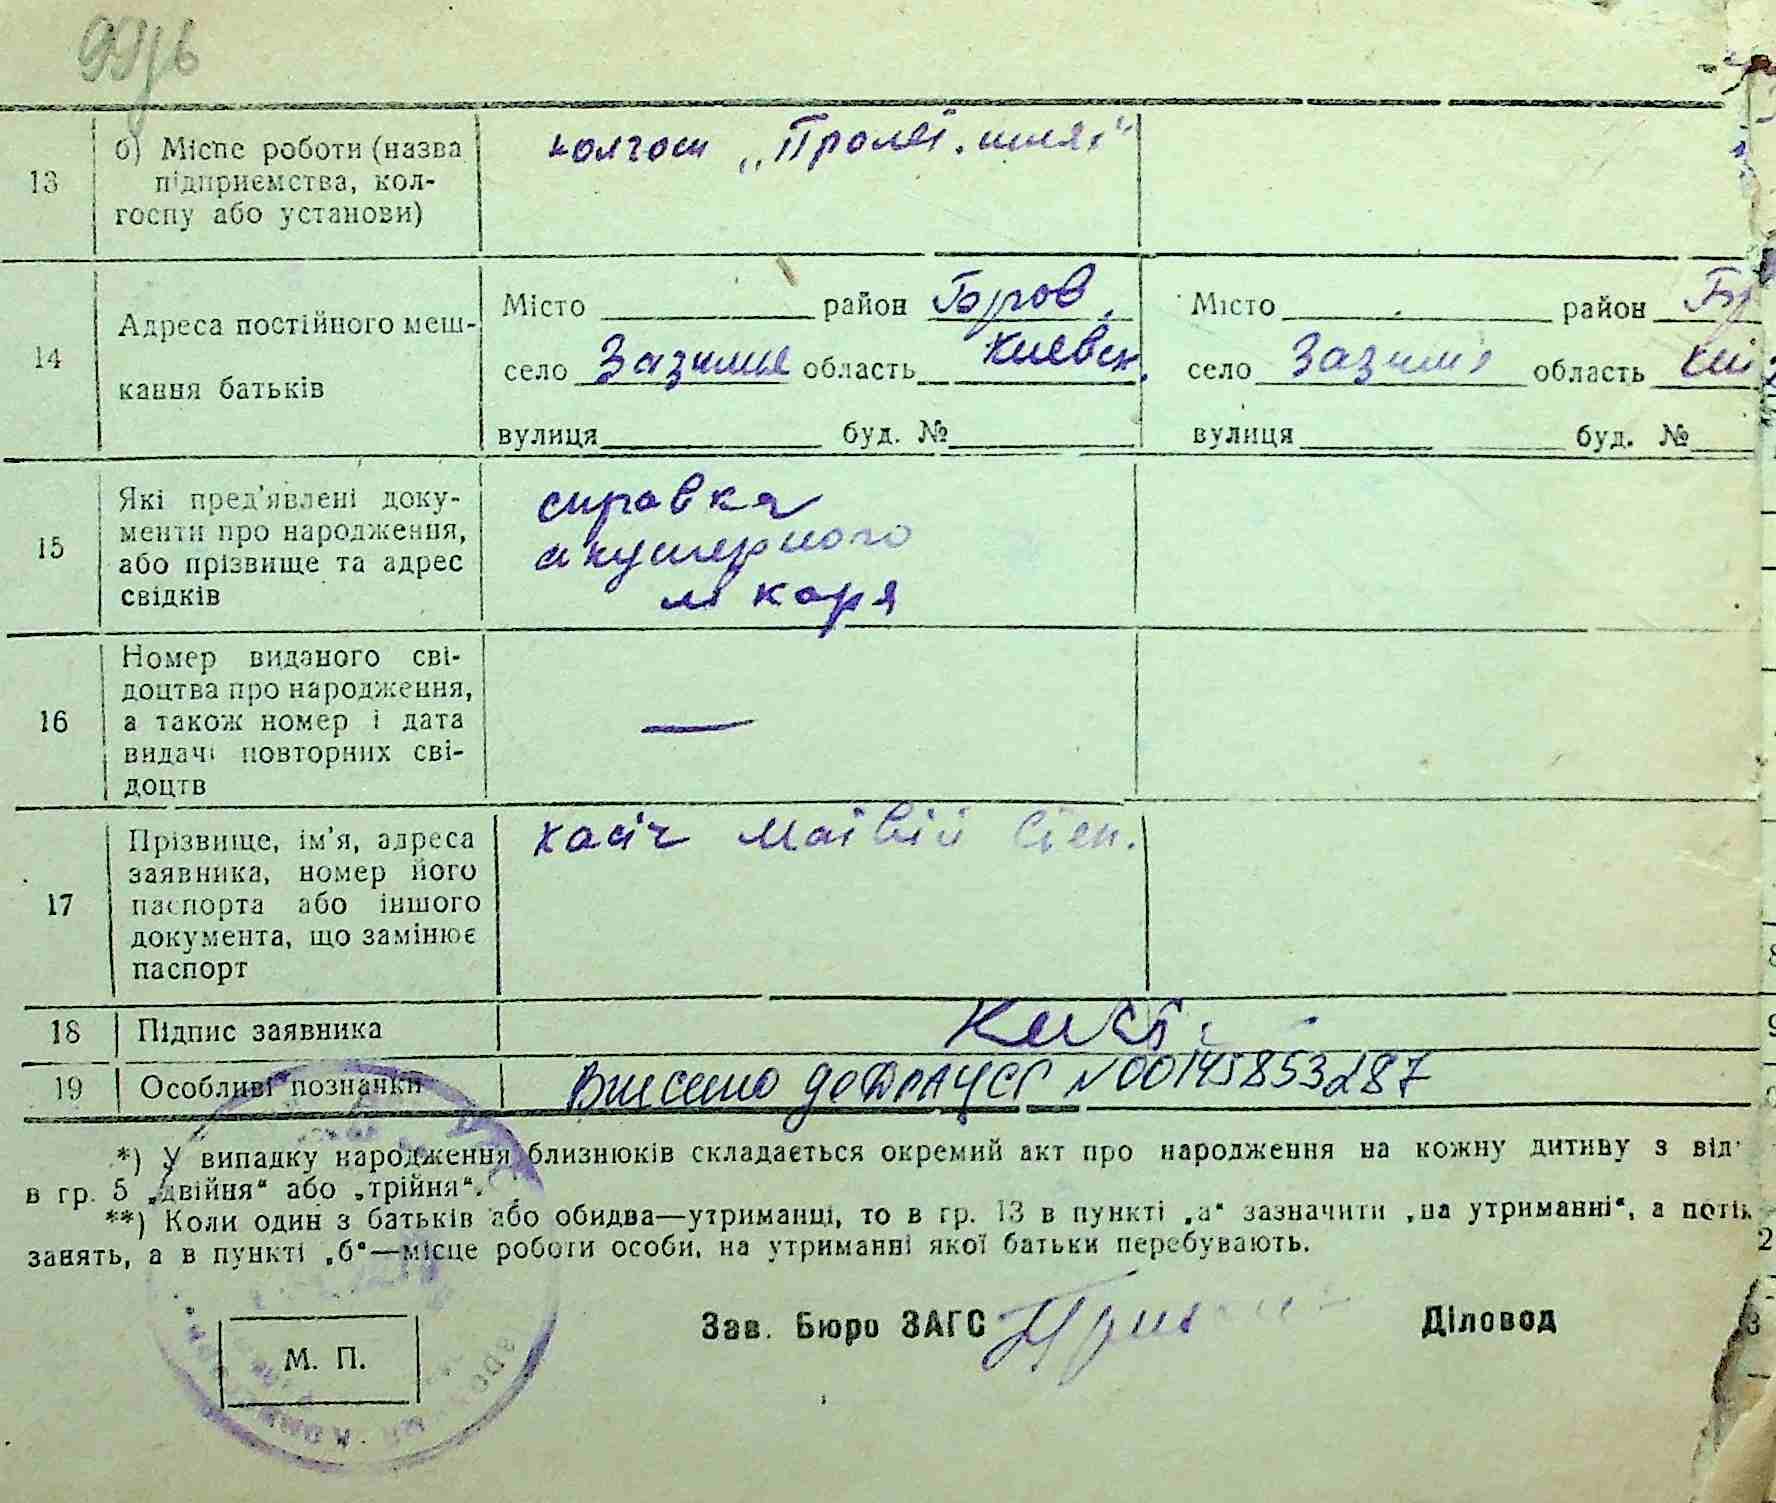 99/6
13
б) Місце роботи (назва
підприємства, кол-
госпу або установи)
колгосп „Пролет. шлях“
14
Адреса постійного меш-
кання батьків
Місто район Бров.
село Зазимья область Киевск.
вулиця буд. №
Місто район Бр
село Зазим'я область Киї
вулиця буд. №
15
Які пред'явлені доку-
менти про народження,
або прізвище та адрес
свідків
справка
акушерного
лікаря
16
Номер виданого сві-
доцтва про народження,
а також номер і дата
видачі повторних сві-
доцтв
—
17
Прізвище, ім'я, адреса
заявника, номер його
паспорта або іншого
документа, що замінює
паспорт
Касіч Матвій Степ.
18 Підпис заявника
19 Особливі позначки Внесено до ДРАЦСГ №00145853287
*) У випадку народження близнюків складається окремий акт про народження на кожну дитину з від
в гр. 5 „двійня“ або „трійня“.
**) Коли один з батьків або обидва—утриманці, то в гр. 13 в пункті „а“ зазначити „на утриманні“, а потім
занять, а в пункті „б“—місце роботи особи, на утриманні якої батьки перебувають.
Зав. Бюро ЗАГС Діловод
М. П.